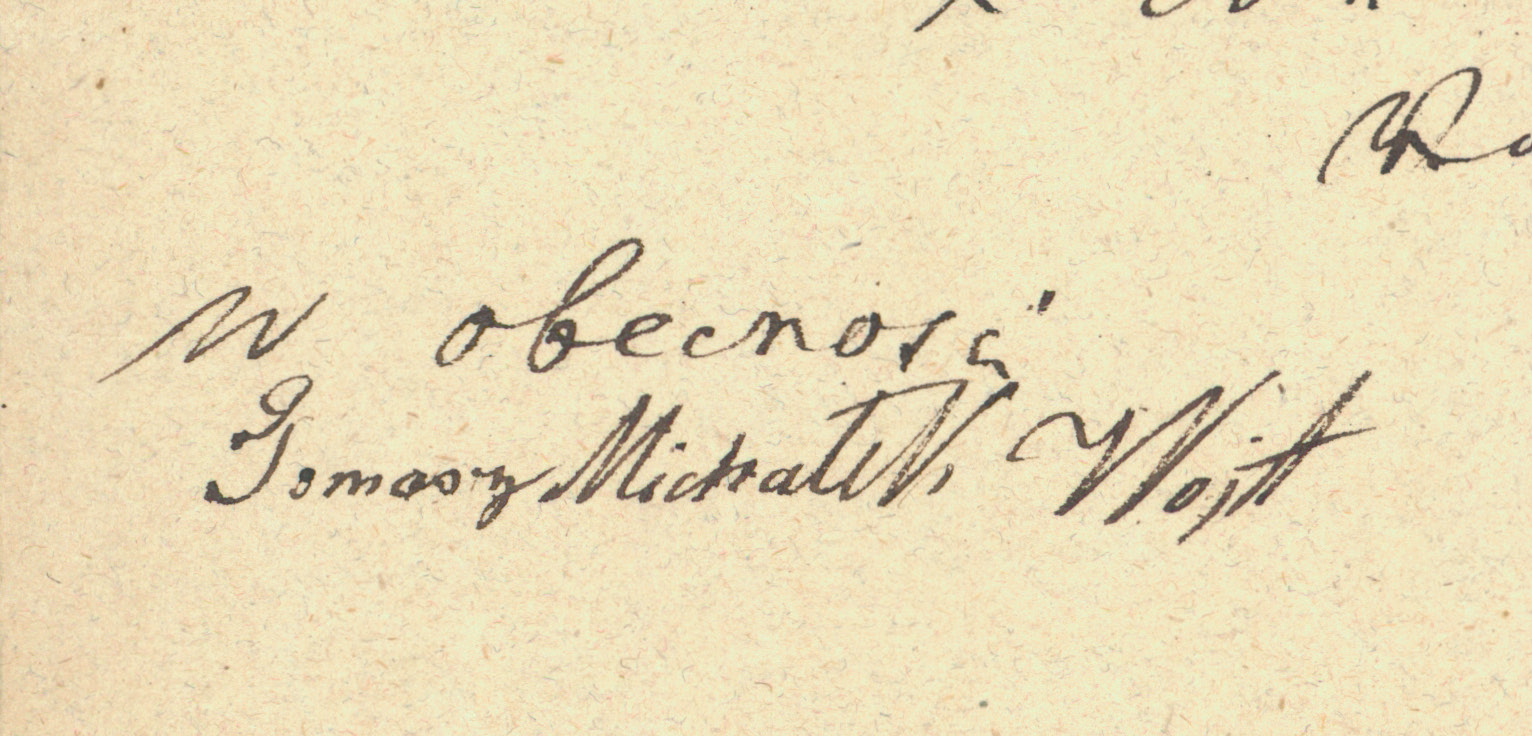 w obecnośći
Tomasz Michałek Wójt